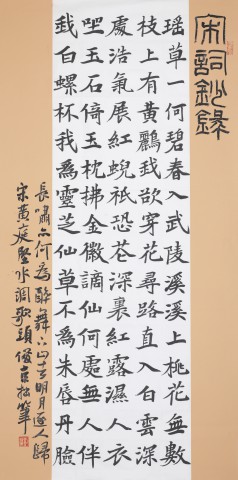 宋詞鈔錄
瑤草一何碧春入武陵溪溪上桃花無數
枝上有黃鸝我欲穿花尋路直入白雲深
處浩氣展紅蜺祇恐花深裏紅露濕人衣
坐玉石倚玉枕拂金徽謫仙何處無人伴
我白螺杯我為靈芝仙草不為朱脣丹臉
長嘯亦何為醉舞下山去明月逐人歸
宋黃庭堅水調歌頭